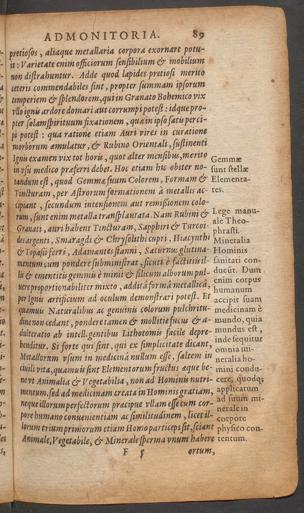 ADMONITORIA. 89
pretiosos, aliaque metallaria corpora exornare potu-
it: Varietate enim officiorum sensibilium & mobilium
non distrahuntur. Adde quod lapides pretiosi merito
ceteris commendabiles sint, propter summam ipsorum
temperiem & splendorem, qui in Granato Bohemico vix
vllo ignis ardore domari aut corrumpi potest: idque pro-
pter solam spirituum fixationem, qua in ipso satis perci-
pi potest: qua ratione etiam Auri vires in curatione
morborum æmulatur, & Rubino Orientali, sustinenti
ignis examen vix tot horis, quot alter mensibus, merito
in vsu medico præferri debet. Hoc etiam hic obiter no-
tandum est, quod Gemmæ suum Colorem, Formam &
Tincturam, per Astrorum formationem à metallis ac-
cipiant, secundum intensionem aut remissionem colo-
rum, sunt enim metalla transplantata. Nam Rubini &
Granati, auri habent Tincturam, Sapphiri & Turcoi-
des argenti, Smaragdi & Chrysolithi cupri, Hiacynthi
& Topasii ferri, Adamantes stanni, Saturnus glutina-
mentum cum pondere subministrat, sicuti è factitiis il-
lis & ementitis gemmis è minii & silicum alborum pul-
uere proportionabiliter mixto, addita forma metallica,
per Ignis artificium ad oculum demonstrari potest. Et
quamuis Naturalibus ac genuinis colorum pulchritu-
dine non cedant, pondere tamen & mollitie fucus & a-
dulteratio ab intelligentibus Lithotomis facile depre-
henditur. Si forte qui sint, qui ex simplicitate dicant,
Metallorum vsum in medicina nullum esse, saltem in
ciuili vita, quamuis sint Elementorum fructus æque be-
ne vt Animalia & Vegetabilia, non ad Hominis nutri-
mentum, sed ad medicinam creata in Hominis gratiam,
neque illorum perfectorum præcipue vllam esse cum cor-
pore humano conuenientiam ac similitudinem, licet il-
lorum trium primorum etiam Homo particeps sit, sciant
Animale, Vegetabile, & Minerale sperma vnum habere
F 5 ortum,
Gemmæ
sunt stellæ
Elementa-
res.
Lege manu-
ale Theo-
phrasti.
Mineralia
Hominis
sanitati con-
ducũt. Dum
enim corpus
humanum
accipit suam
medicinam è
mundo, quia
mundus est,
inde sequitur
omnia mi-
neralia ho-
mini condu-
cere, quodq;
applicatum
ad suum mi-
nerale in
corpore
physico con-
tentum.